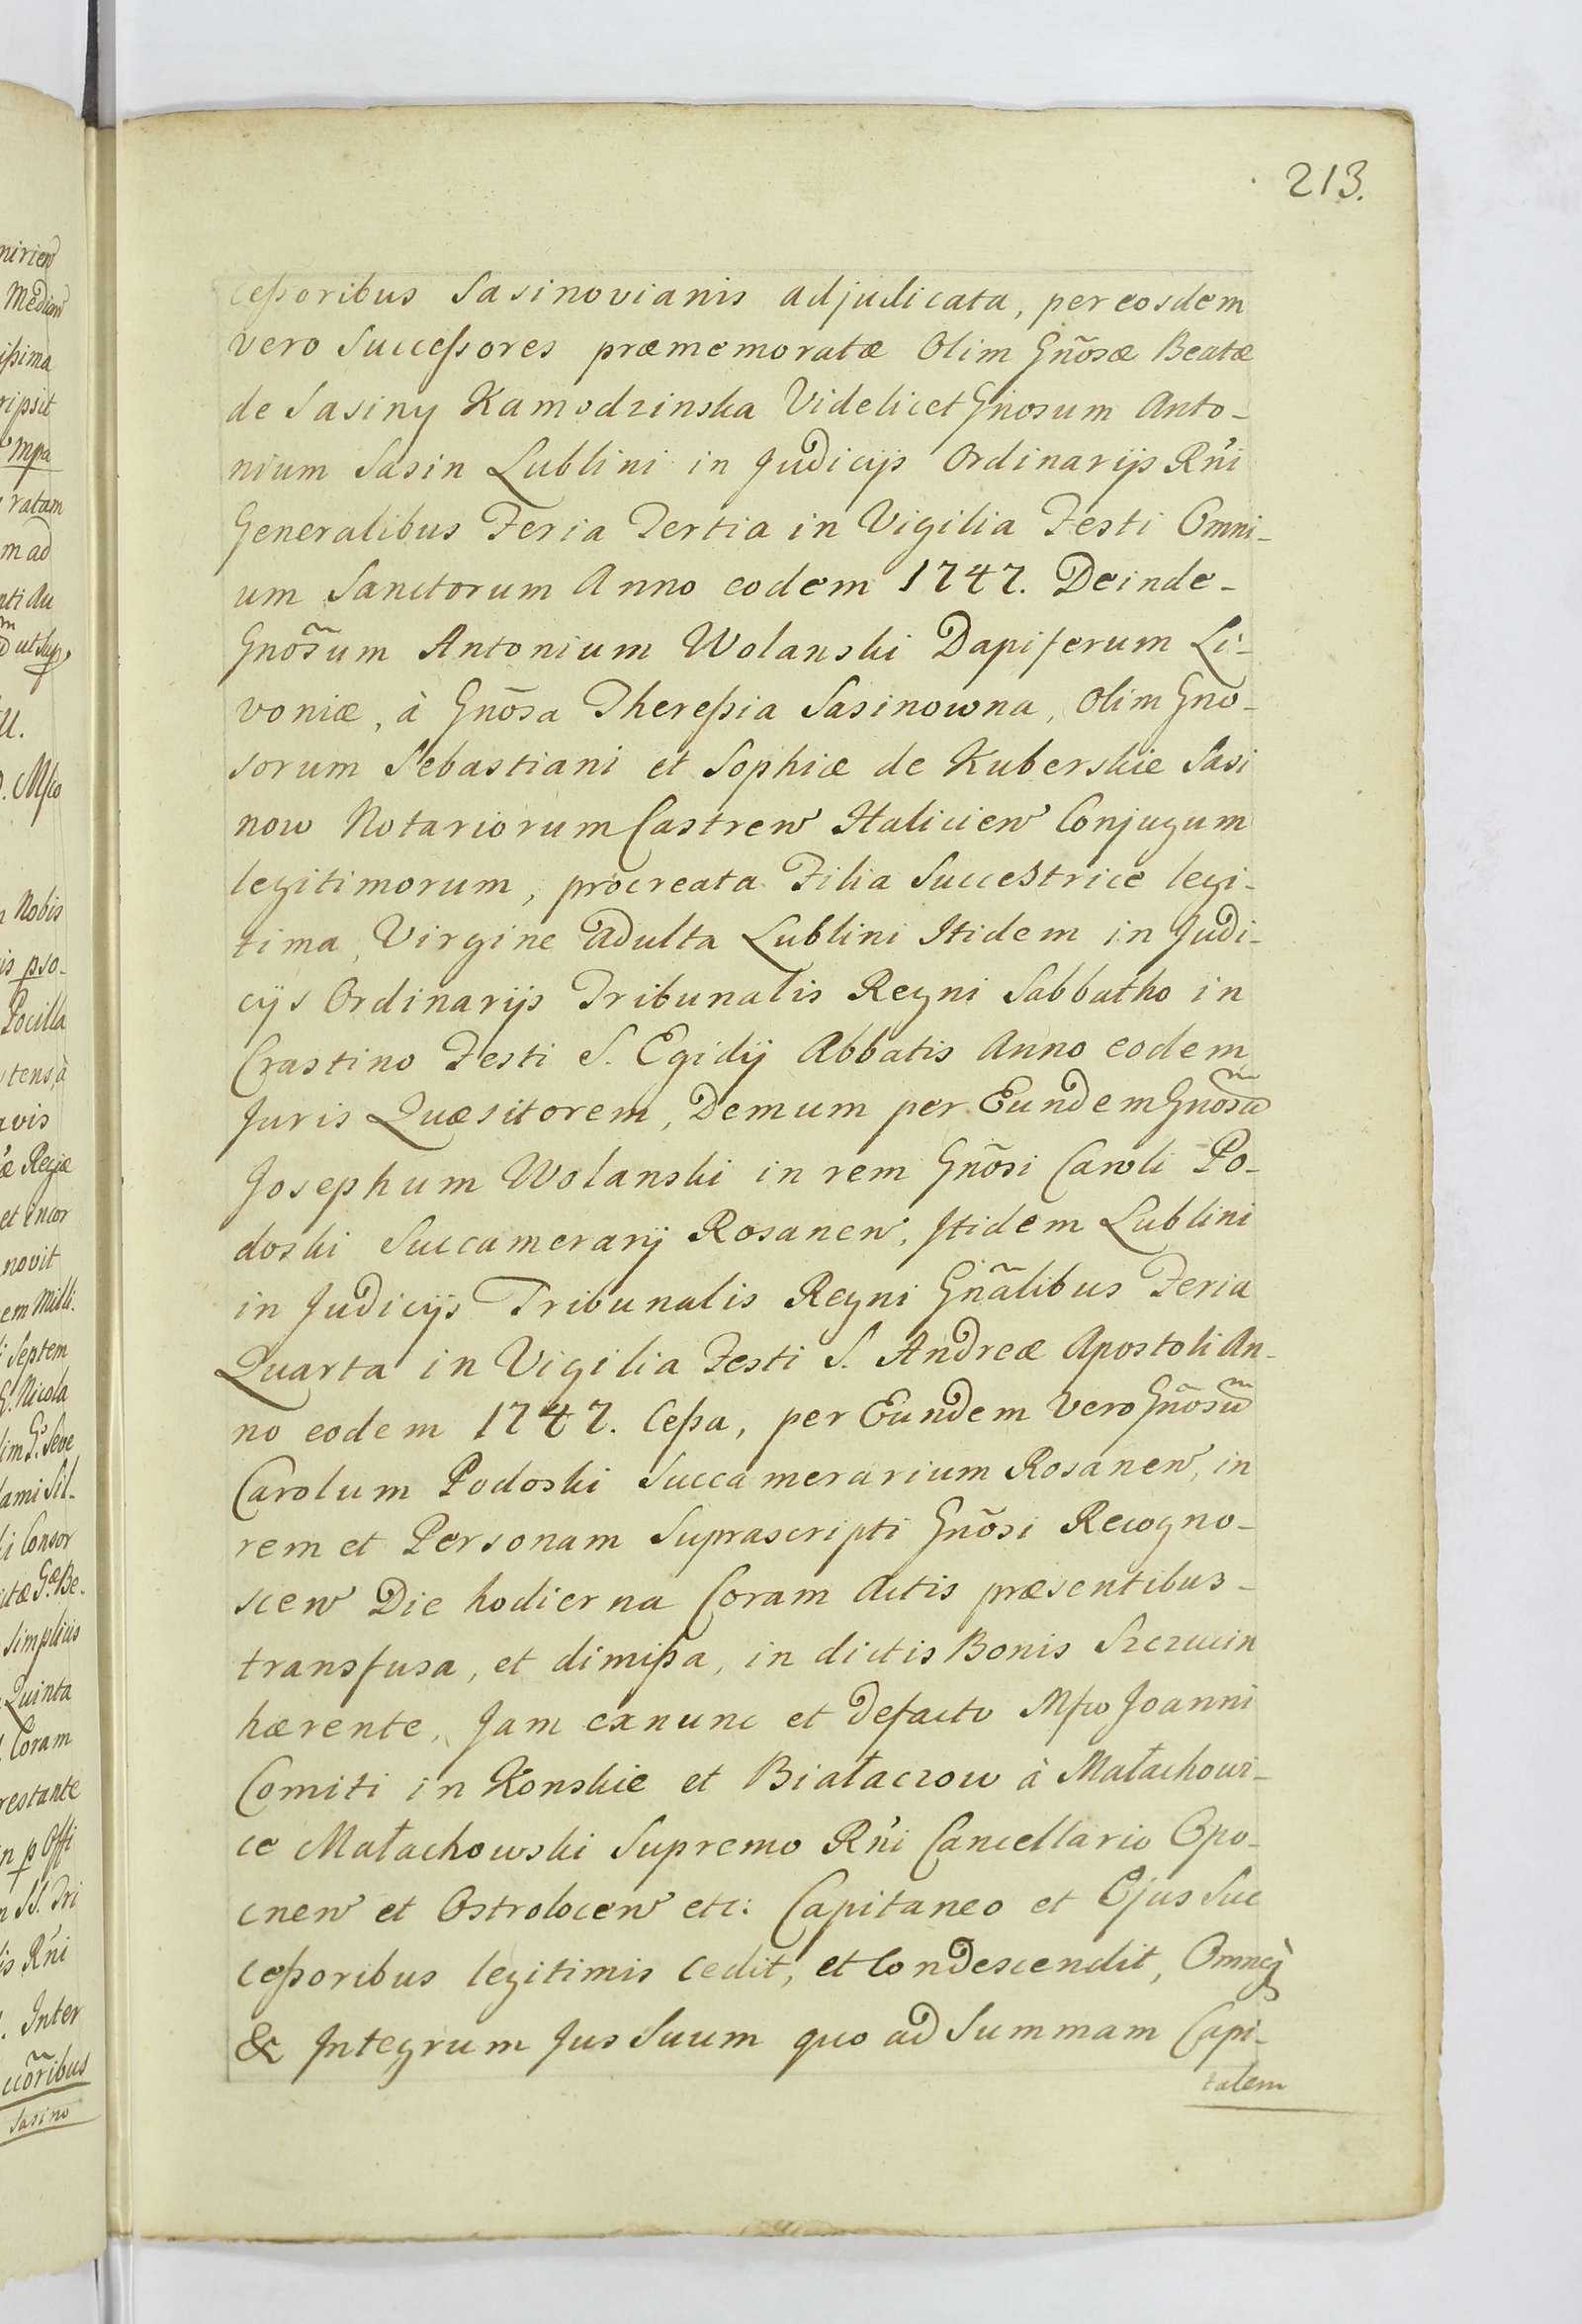 213.
cessoribus Sasinovianis adjudicata, per eosdem
vero Successores præmemoratæ Olim Gñosæ Beatæ
de Sasiny Kamodzinska Videlicet Gnosum Anto-
nium Sasin Lublini in Judicijs Ordinarijs Rni
Generalibus Feria Tertia in Vigilia Festi Omni-
um Sanctorum Anno eodem 1747. Deinde-
Gnõsum Antonium Wolanski Dapiferum Li-
voniæ, à Gñosa Theressia Sasinowna, Olim Gno-
sorum Sebastiani et Sophiæ de Kuberskie Sasi
now Notariorum Castren Haliciен Conjugum
legitimorum, procreata Filia Succestrice legi-
tima, Virgine adulta Lublini Itidem in Judi-
cijs Ordinarijs Tribunalis Regni Sabbatho in
Crastino Festi S. Egidij Abbatis Anno eodem
Juris Quæsitorem, Demum per Eundem Gnosũ
Josephum Wolanski in rem Gñosi Caroli Po-
doski Succamerarij Rosanen, Itidem Lublini
in Judicijs Tribunalis Regni Gñalibus Feria
Quarta in Vigilia Festi S. Andreæ Apostoli An-
no eodem 1747. Cessa, per Eundem vero Gñosũ
Carolum Podoski Succamerarium Rosanen, in
rem et Personam Suprascripti Gñosi Recogno-
scen Die hodierna Coram Actis præsentibus-
transfusa, et dimissa, in dictis Bonis Szczucin
hærente, Jam exnunc et defacto Mfco Joanni
Comiti in Konskie et Białaczow à Małachowi-
ce Małachowski Supremo Rni Cancellario Opo-
cnen et Ostrolocen etc: Capitaneo et Ejus Suc
cessoribus legitimis cedit, et Condescendit, Omneq̀
& Integrum Jus Suum quo ad Summam Capi-
talem